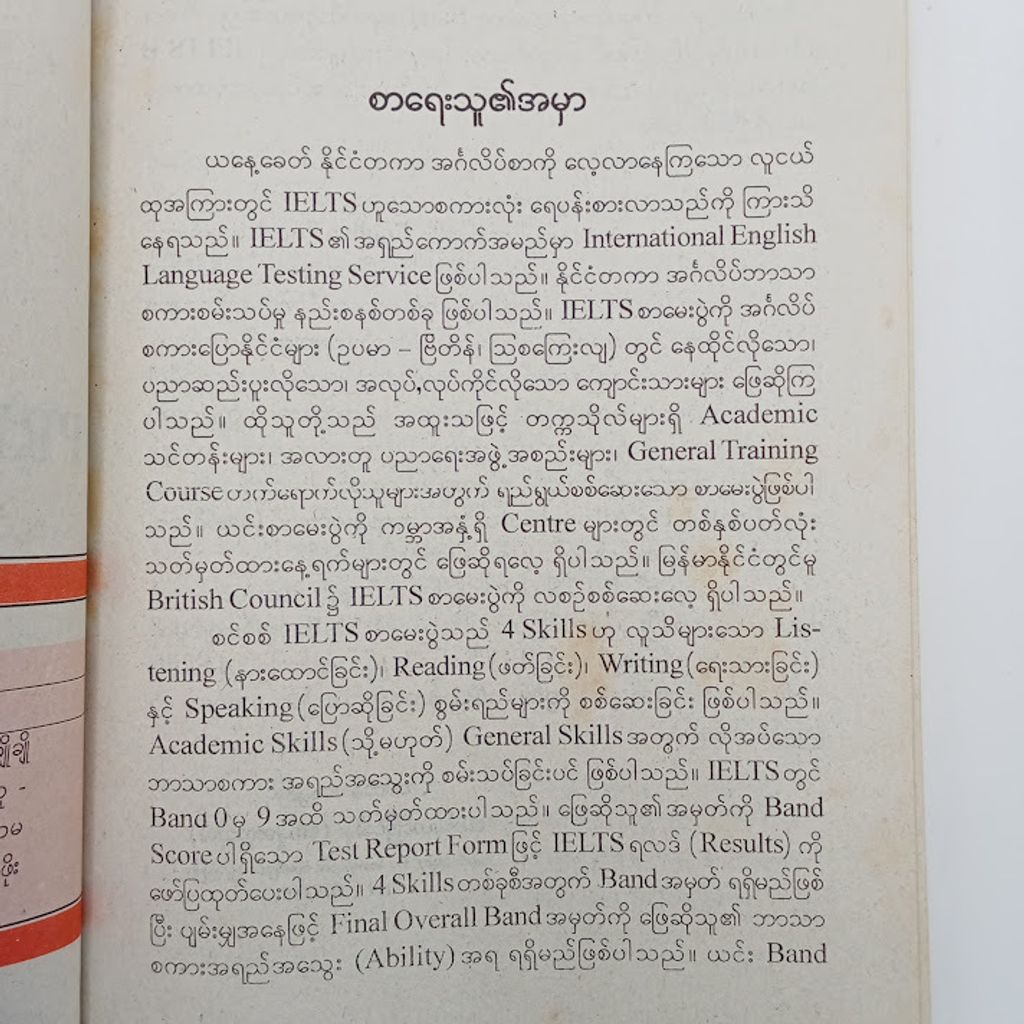 စာရေးသူ၏အမှာ
ယနေ့ခေတ် နိုင်ငံတကာ အင်္ဂလိပ်စာကို လေ့လာနေကြသော လူငယ်
ထုအကြားတွင် IELTS ဟူသောစကားလုံး ရေပန်းစားလာသည်ကို ကြားသိ
နေရသည်။ IELTS ၏ အရှည်ကောက်အမည်မှာ International English
Language Testing Service ဖြစ်ပါသည်။ နိုင်ငံတကာ အင်္ဂလိပ်ဘာသာ
စကားစမ်းသပ်မှု နည်းစနစ်တစ်ခု ဖြစ်ပါသည်။ IELTS စာမေးပွဲကို အင်္ဂလိပ်
စကားပြောနိုင်ငံများ (ဥပမာ – ဗြိတိန်၊ ဩစကြေးလျ) တွင် နေထိုင်လိုသော၊
ပညာဆည်းပူးလိုသော၊ အလုပ်,လုပ်ကိုင်လိုသော ကျောင်းသားများ ဖြေဆိုကြ
ပါသည်။ ထိုသူတို့သည် အထူးသဖြင့် တက္ကသိုလ်များရှိ Academic
သင်တန်းများ၊ အလားတူ ပညာရေးအဖွဲ့အစည်းများ၊ General Training
Course တက်ရောက်လိုသူများအတွက် ရည်ရွယ်စစ်ဆေးသော စာမေးပွဲဖြစ်ပါ
သည်။ ယင်းစာမေးပွဲကို ကမ္ဘာအနှံ့ရှိ Centre များတွင် တစ်နှစ်ပတ်လုံး
သတ်မှတ်ထားနေ့ရက်များတွင် ဖြေဆိုရလေ့ ရှိပါသည်။ မြန်မာနိုင်ငံတွင်မူ
British Council ၌ IELTS စာမေးပွဲကို လစဉ်စစ်ဆေးလေ့ ရှိပါသည်။
စင်စစ် IELTS စာမေးပွဲသည် 4 Skills ဟု လူသိများသော Lis-
tening (နားထောင်ခြင်း)၊ Reading (ဖတ်ခြင်း)၊ Writing (ရေးသားခြင်း)
နှင့် Speaking (ပြောဆိုခြင်း) စွမ်းရည်များကို စစ်ဆေးခြင်း ဖြစ်ပါသည်။
Academic Skills (သို့မဟုတ်) General Skills အတွက် လိုအပ်သော
ဘာသာစကား အရည်အသွေးကို စမ်းသပ်ခြင်းပင် ဖြစ်ပါသည်။ IELTS တွင်
Band 0 မှ 9 အထိ သတ်မှတ်ထားပါသည်။ ဖြေဆိုသူ၏ အမှတ်ကို Band
Score ပါရှိသော Test Report Form ဖြင့် IELTS ရလဒ် (Results) ကို
ဖော်ပြထုတ်ပေးပါသည်။ 4 Skills တစ်ခုစီအတွက် Band အမှတ် ရရှိမည်ဖြစ်
ပြီး ပျမ်းမျှအနေဖြင့် Final Overall Band အမှတ်ကို ဖြေဆိုသူ၏ ဘာသာ
စကားအရည်အသွေး (Ability) အရ ရရှိမည်ဖြစ်ပါသည်။ ယင်း Band